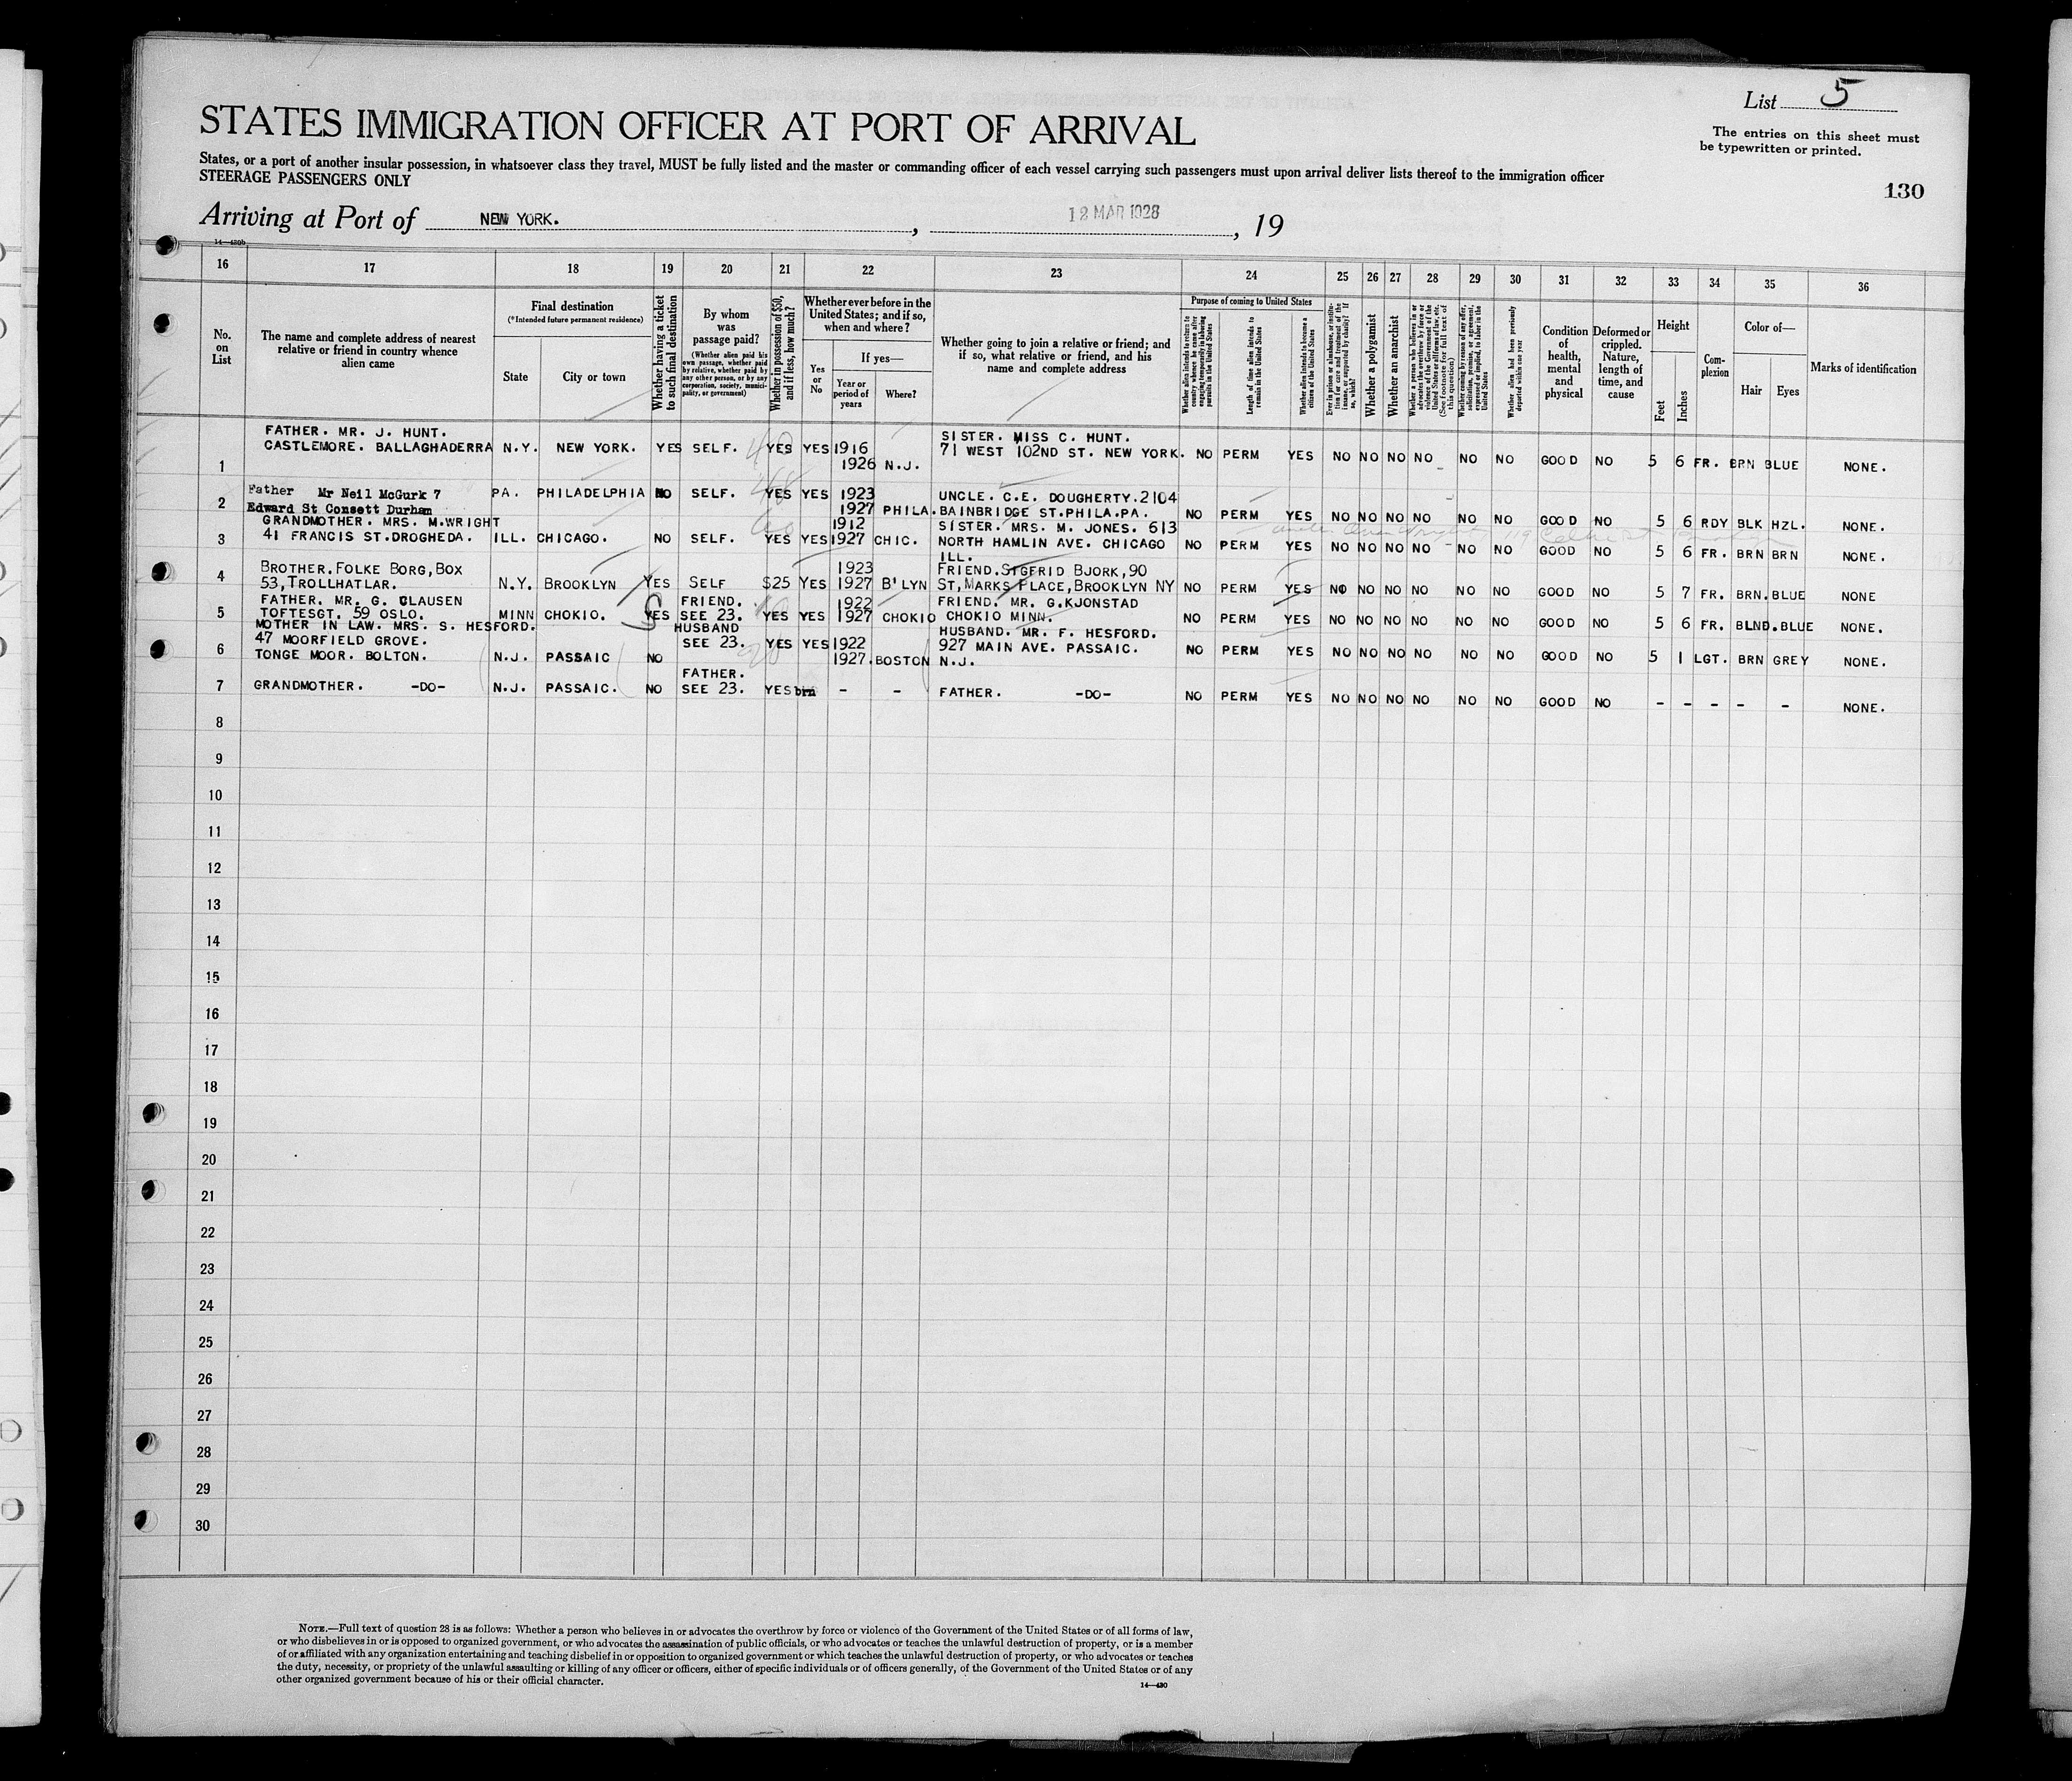 List 5
The entries on this sheet must
be typewritten or printed.
STATES IMMIGRATION OFFICER AT PORT OF ARRIVAL
States, or a port of another insular possession, in whatsoever class they travel, MUST be fully listed and the master or commanding officer of each vessel carrying such passengers must upon arrival deliver lists thereof to the immigration officer
STEERAGE PASSENGERS ONLY
130
Arriving at Port of NEW YORK. , 12 MAR 1928 , 19
14—430b
16 17 18 19 20 21 22 23 24 25 26 27 28 29 30 31 32 33 34 35 36
No.
on
List
The name and complete address of nearest
relative or friend in country whence
alien came
Final destination
(*Intended future permanent residence)
State
City or town
Whether having a ticket
to such final destination
By whom
was
passage paid?
(Whether alien paid his
own passage, whether paid
by relative, whether paid by
any other person, or by any
corporation, society, munici-
pality, or government)
Whether in possession of $50,
and if less, how much?
Whether ever before in the
United States; and if so,
when and where?
Yes
or
No
If yes—
Year or
period of
years
Where?
Whether going to join a relative or friend; and
if so, what relative or friend, and his
name and complete address
Purpose of coming to United States
Whether alien intends to return to
country whence he came after
engaging temporarily in laboring
pursuits in the United States
Length of time alien intends to
remain in the United States
Whether alien intends to become a
citizen of the United States
Ever in prison or almshouse, or institu-
tion for care and treatment of the
insane, or supported by charity? If
so, which?
Whether a polygamist
Whether an anarchist
Whether a person who believes in or
advocates the overthrow by force or
violence of the Government of the
United States or all forms of law, etc.
(See footnote for full text of
this question)
Whether coming by reason of any offer,
solicitation, promise, or agreement,
expressed or implied, to labor in the
United States
Whether alien had been previously
deported within one year
Condition
of
health,
mental
and
physical
Deformed or
crippled.
Nature,
length of
time, and
cause
Height
Feet
Inches
Com-
plexion
Color of—
Hair
Eyes
Marks of identification
FATHER. MR. J. HUNT. SISTER. MISS C. HUNT.
1 CASTLEMORE. BALLAGHADERRA N.Y. NEW YORK. YES SELF. YES YES 1916 71 WEST 102ND ST. NEW YORK. NO PERM YES NO NO NO NO NO NO GOOD NO 5 6 FR. BRN BLUE NONE.
1926 N.J.
Father Mr Neil McGurk 7 PA. PHILADELPHIA NO SELF. YES YES 1923 UNCLE. C.E. DOUGHERTY. 2104
2 Edward St Consett Durham 1927 PHILA. BAINBRIDGE ST. PHILA. PA. NO PERM YES NO NO NO NO NO NO GOOD NO 5 6 RDY BLK HZL. NONE.
GRANDMOTHER. MRS. M. WRIGHT 1912 SISTER. MRS. M. JONES. 613
3 41 FRANCIS ST. DROGHEDA. ILL. CHICAGO. NO SELF. YES YES 1927 CHIC. NORTH HAMLIN AVE. CHICAGO NO PERM YES NO NO NO NO NO NO GOOD NO 5 6 FR. BRN BRN NONE.
ILL.
BROTHER. FOLKE BORG, BOX 1923 FRIEND. SIGFRID BJORK, 90
4 53, TROLLHATLAR. N.Y. BROOKLYN YES SELF $25 YES 1927 B'LYN ST, MARKS PLACE, BROOKLYN NY NO PERM YES NO NO NO NO NO NO GOOD NO 5 7 FR. BRN. BLUE NONE
FATHER. MR. G. CLAUSEN FRIEND. 1922 FRIEND. MR. G. KJONSTAD
5 TOFTESGT. 59 OSLO. MINN CHOKIO. YES SEE 23. YES YES 1927 CHOKIO CHOKIO MINN. NO PERM YES NO NO NO NO NO NO GOOD NO 5 6 FR. BLND. BLUE NONE.
MOTHER IN LAW. MRS. S. HESFORD. HUSBAND HUSBAND. MR. F. HESFORD.
47 MOORFIELD GROVE. SEE 23. YES YES 1922 927 MAIN AVE. PASSAIC.
6 TONGE MOOR. BOLTON. N.J. PASSAIC NO 1927. BOSTON N.J. NO PERM YES NO NO NO NO NO NO GOOD NO 5 1 LGT. BRN GREY NONE.
FATHER.
7 GRANDMOTHER. -DO- N.J. PASSAIC. NO SEE 23. YES brn - - FATHER. -DO- NO PERM YES NO NO NO NO NO NO GOOD NO - - - - - NONE.
8
9
10
11
12
13
14
15
16
17
18
19
20
21
22
23
24
25
26
27
28
29
30
NOTE.—Full text of question 28 is as follows: Whether a person who believes in or advocates the overthrow by force or violence of the Government of the United States or of all forms of law,
or who disbelieves in or is opposed to organized government, or who advocates the assassination of public officials, or who advocates or teaches the unlawful destruction of property, or is a member
of or affiliated with any organization entertaining and teaching disbelief in or opposition to organized government or which teaches the unlawful destruction of property, or who advocates or teaches
the duty, necessity, or propriety of the unlawful assaulting or killing of any officer or officers, either of specific individuals or of officers generally, of the Government of the United States or of any
other organized government because of his or their official character.
14—430